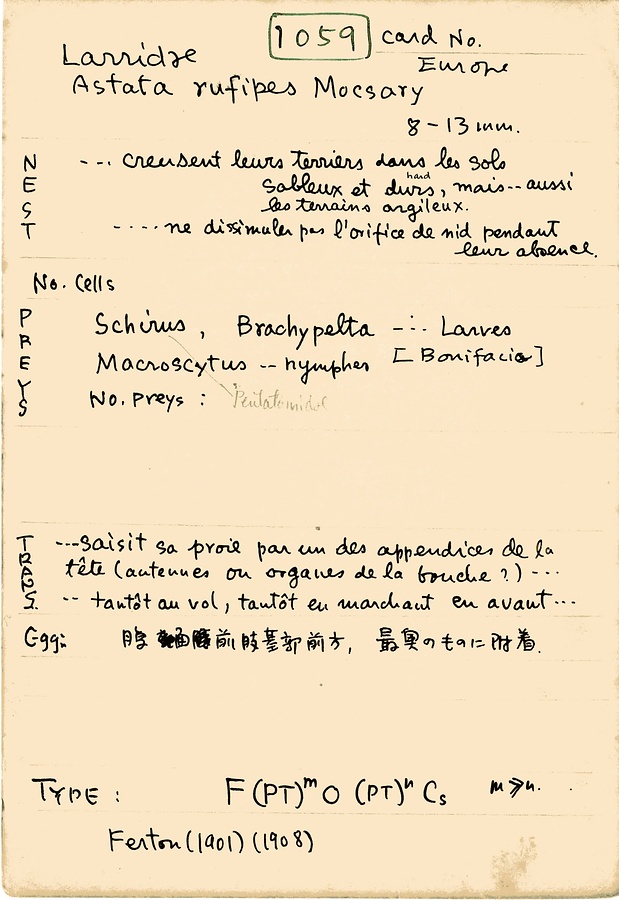 1059 Card No.
Larridae Europe
Astata rufipes Mocsary
8-13 mm.
NEST --- creusent leurs terriers dans les sols
hard
sableux et durs, mais-- aussi
les terrains argileux.
---- ne dissimuler pas l'orifice de nid pendant
leur absence.
No. Cells
PREYS Schirus, Brachypelta --- Larves
Macroscytus -- nymphes [Bonifacio]
No. Preys : Pentatomidae
TRANS. ---saisit sa proie par un des appendices de la
tête (antennes ou organes de la bouche?) ---
-- tantôt au vol, tantôt en marchant en avant---
Egg: 腹 前肢基部前方, 最奥のものに附着.
TYPE : F(PT)ᵐO (PT)ⁿ Cs m≫n.
Ferton (1901) (1908)